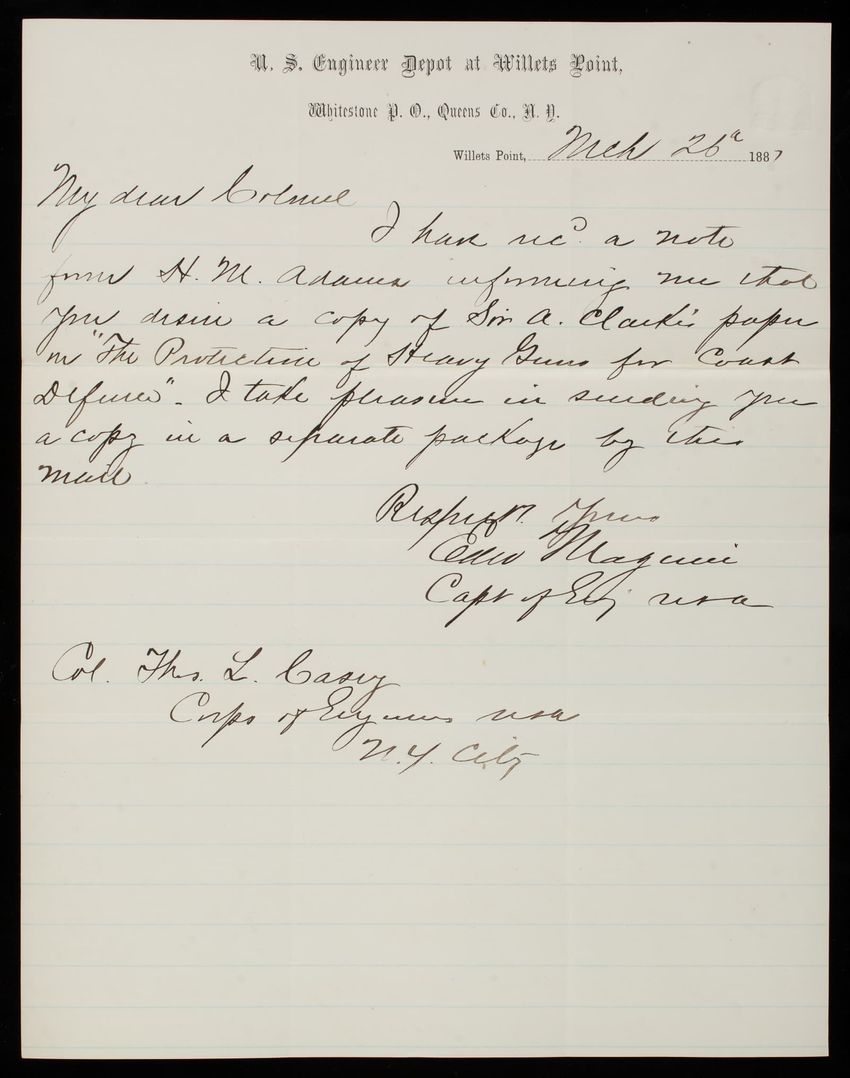 U. S. Engineer Depot at Willets Point,
Whitestone P. O., Queens Co., N. Y.
Willets Point, Mch 26th 1887
My dear Colonel
I have recd. a note
from H. M. Adams informing me that
you desire a copy of Sir A. Clarke's paper
on "The Protection of Heavy Guns for Coast
Defense". I take pleasure in sending you
a copy in a separate package by this
mail.
Respecty. Yours
Edw Maguire
Capt of Eng USA
Col. Thos. L. Casey
Corps of Engineers USA
N.Y. City